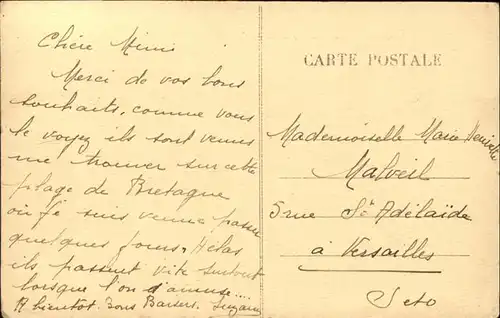 Chère Mimi
Merci de vos bons
souhaits, comme vous
le voyez ils sont venus
me trouver sur cette
plage de Bretagne
où je suis venue passer
quelques jours. Hélas
ils passent vite surtout
lorsque l'on s'amuse....
A bientôt. Bons Baisers. Suzanne
CARTE POSTALE
Mademoiselle Marie
Malveil
5 rue Ste Adélaïde
à Versailles
S et O